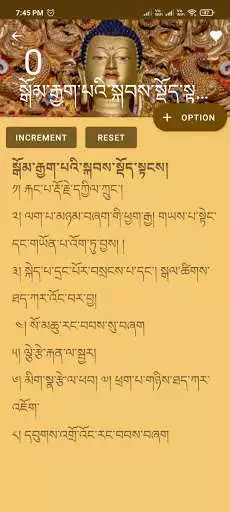 7:45 PM
0
སྒོམ་རྒྱག་པའི་སྐབས་སྡོད་སྟ...
+ OPTION
INCREMENT
RESET
སྒོམ་རྒྱག་པའི་སྐབས་སྡོད་སྟངས།
༡། རྐང་པ་རྡོ་རྗེ་དཀྱིལ་ཀྲུང་།
༢། ལག་པ་མཉམ་བཞག་གི་ཕྱག་རྒྱ། གཡས་པ་སྟེང་
དང་གཡོན་པ་འོག་ཏུ་བྱས། །
༣། སྐེད་པ་དྲང་པོར་བསྲངས་པ་དང་། སྒལ་ཚིགས་
ཐད་ཀར་འོང་བར་བྱ།
༤། སོ་མཆུ་རང་བབས་སུ་བཞག
༥། ལྕེ་རྩེ་རྐན་ལ་སྦྱར།
༦། མིག་སྣ་རྩེ་ལ་ཕབ། ༧། ཕྲག་པ་གཉིས་ཐད་ཀར་
འཇོག་
༨། དབུགས་འགྲོ་འོང་རང་བབས་བཞག